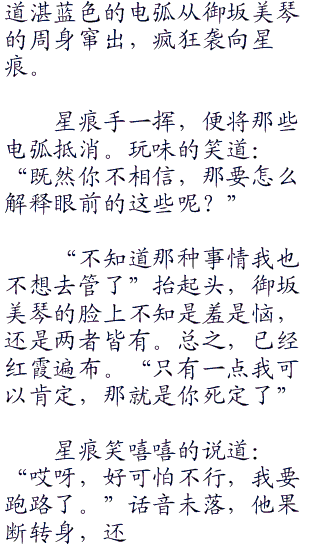 道湛蓝色的电弧从御坂美琴
的周身窜出，疯狂袭向星
痕。
星痕手一挥，便将那些
电弧抵消。玩味的笑道：
“既然你不相信，那要怎么
解释眼前的这些呢？”
“不知道那种事情我也
不想去管了”抬起头，御坂
美琴的脸上不知是羞是恼，
还是两者皆有。总之，已经
红霞遍布。“只有一点我可
以肯定，那就是你死定了”
星痕笑嘻嘻的说道：
“哎呀，好可怕不行，我要
跑路了。”话音未落，他果
断转身，还